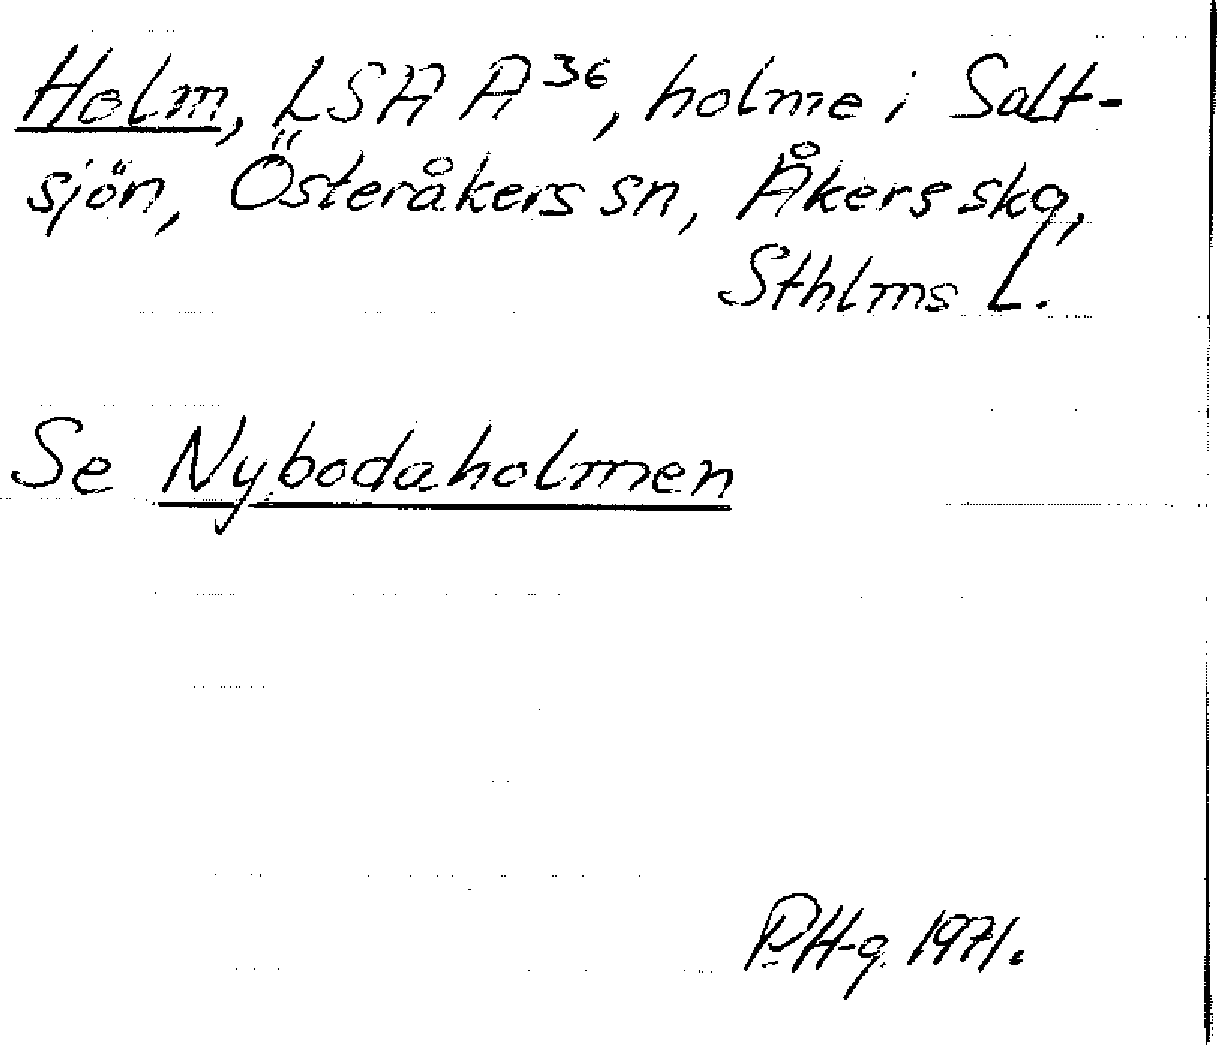 Holm, LSA A36, holme i Salt-
sjön, Österåkers sn, Åkers skg,
Sthlms L.
Se Nybodaholmen
P.H-g. 1971.